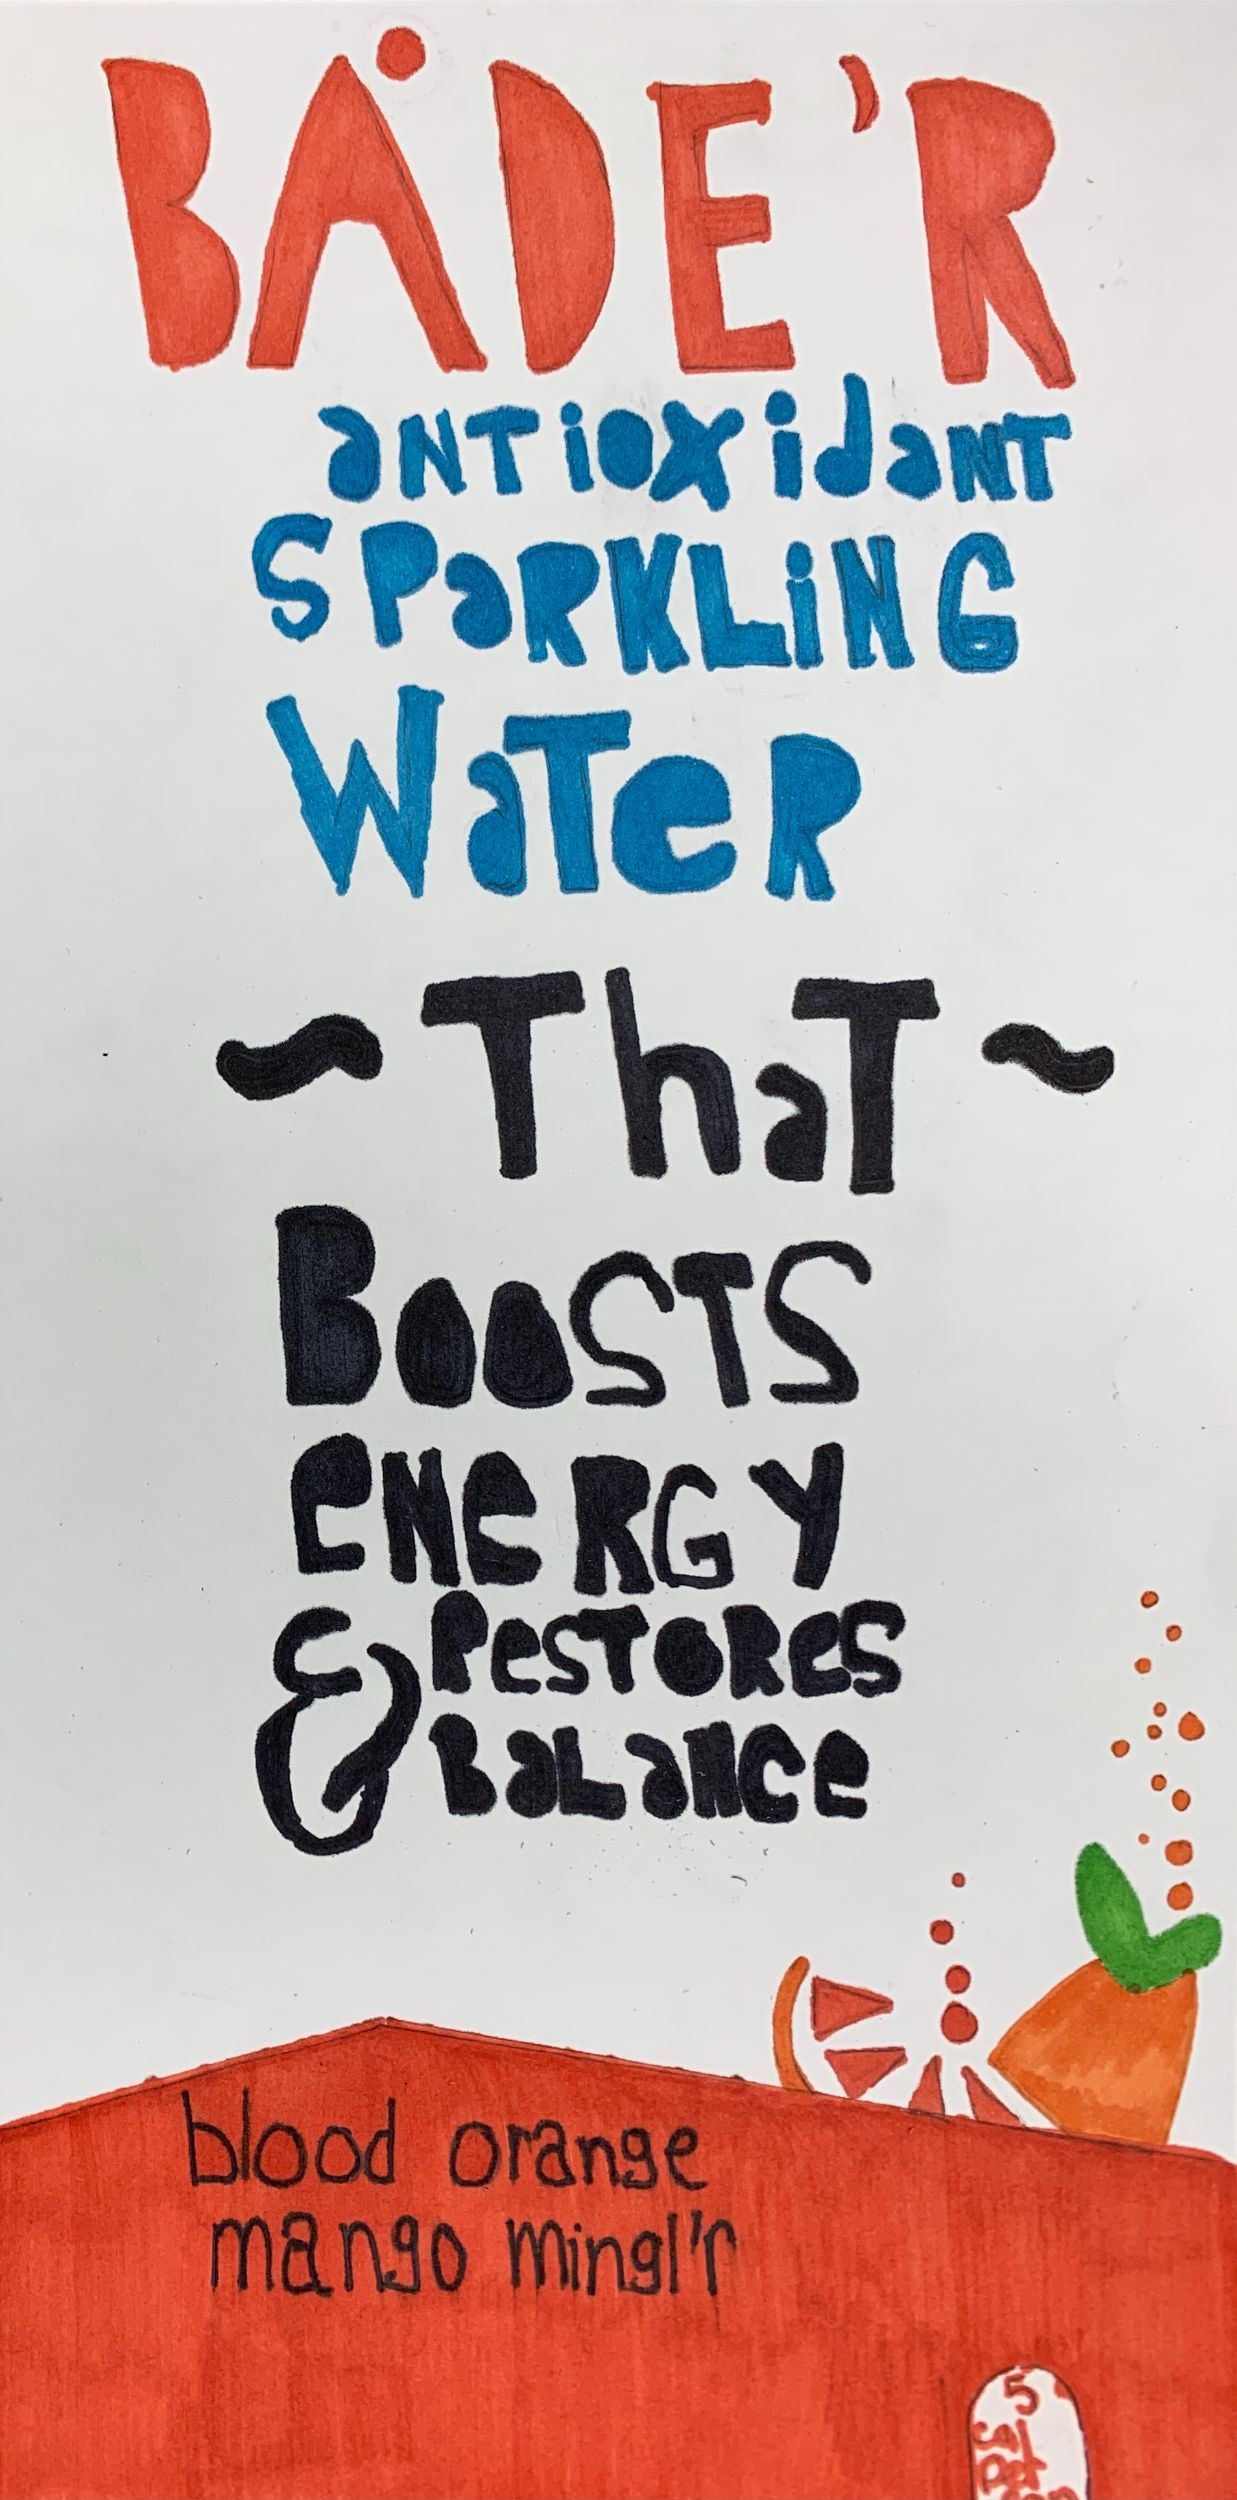 BÅDE'R
antioxidant
SParKLiNG
WaTeR
~ ThaT ~
BooSTS
eNeRGY
& ResTORes
BaLaNce
blood orange
mango mingl'r
5